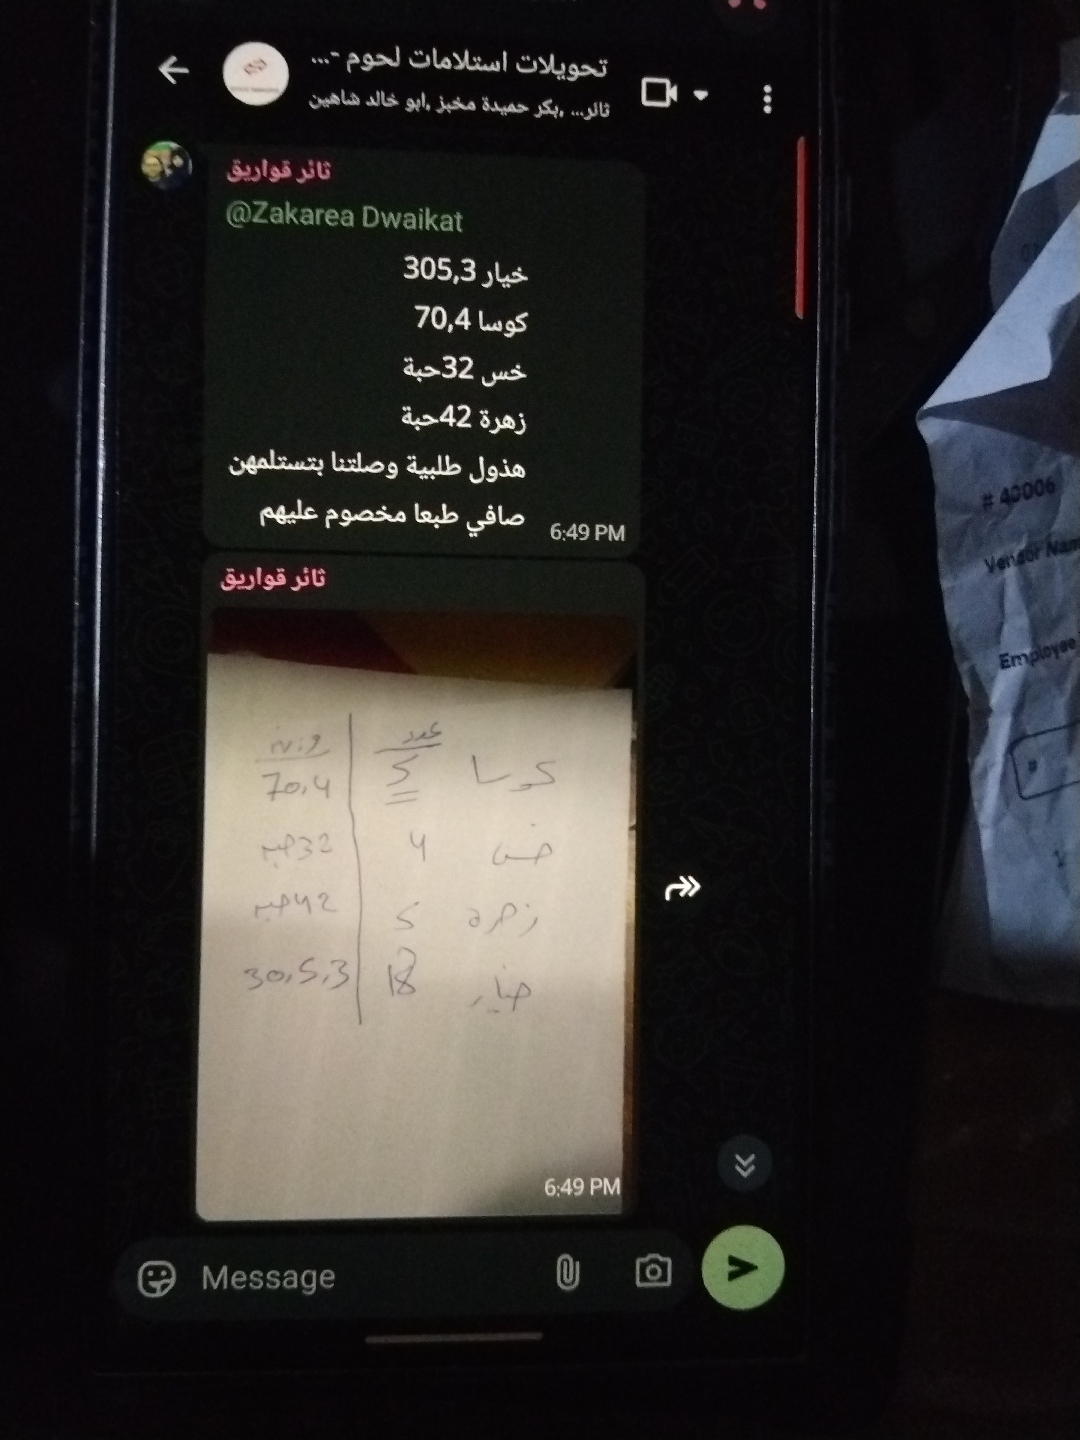 تحويلات استلامات لحوم -...
ثائر... ,بكر حميدة مخبز ,ابو خالد شاهين
ثائر قواريق
@Zakarea Dwaikat
خيار 305,3
كوسا 70,4
خس 32حبة
زهرة 42حبة
هذول طلبية وصلتنا بتستلمهن
صافي طبعا مخصوم عليهم
6:49 PM
ثائر قواريق
عدد وزن
كوسا 5 70,4
خس 4 32حبه
زهره 5 42حبه
خيار 18 30,5,3
6:49 PM
Message
# 40006
Vendor Nam
Employee
#